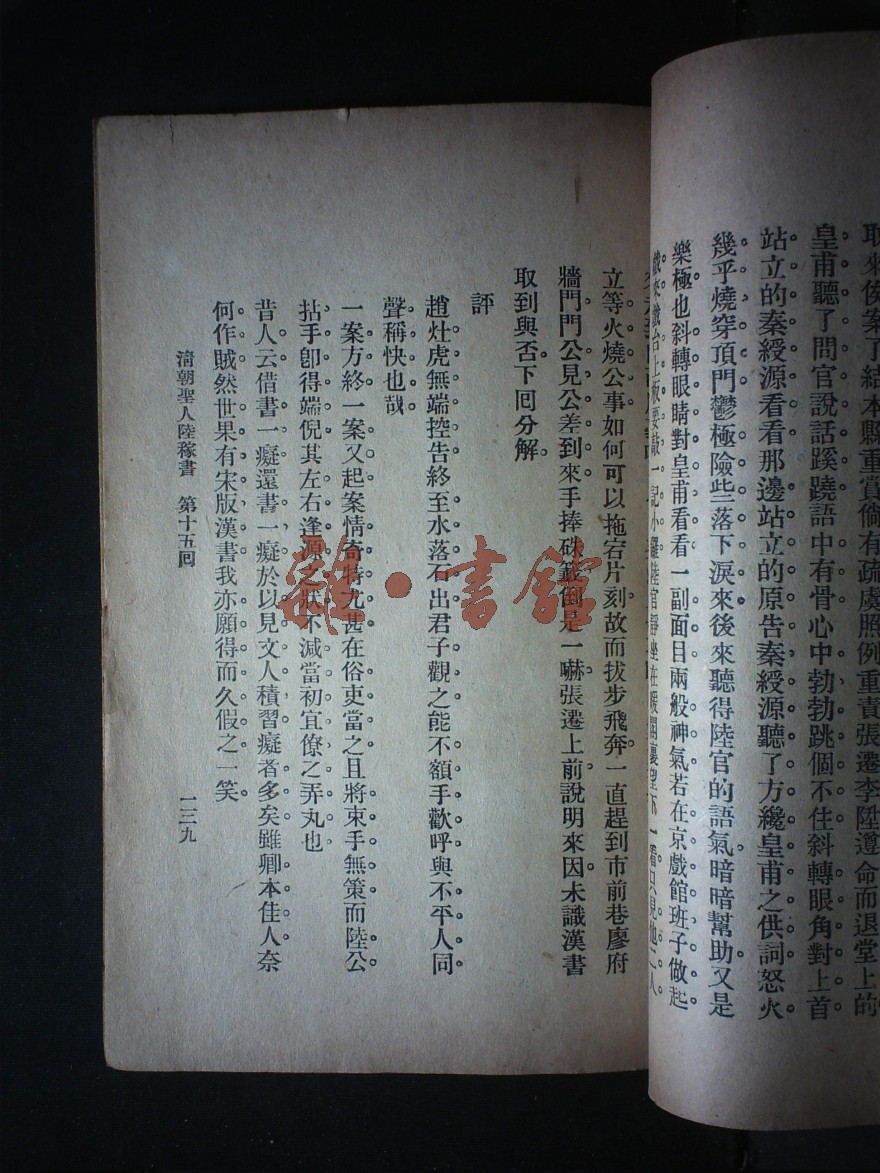 取來侯案了結本縣重賞倘有疏虞照例重責張遷李陞遵命而退堂上的
皇甫聽了問官說話蹊蹺語中有骨心中勃勃跳個不住斜轉眼角對上首
站立的秦綬源看看那邊站立的原告秦綬源聽了方纔皇甫之供詞怒火
幾乎燒穿頂門鬱極險些落下淚來後來聽得陸官的語氣暗暗幫助又是
樂極也斜轉眼睛對皇甫看看一副面目兩般神氣若在京戲館班子做起
立等火燒公事如何可以拖宕片刻故而拔步飛奔一直趕到市前巷廖府
牆門門公見公差到來手捧硃籤倒是一嚇張遷上前說明來因未識漢書
取到與否下回分解
評
趙灶虎無端控告終至水落石出君子觀之能不額手歡呼與不平人同
聲稱快也哉
一案方終一案又起案情奇特尤甚在俗吏當之且將束手無策而陸公
拈手卽得端倪其左右逢源之狀不減當初宜僚之弄丸也
昔人云借書一癡還書一癡於以見文人積習癡者多矣雖卿本佳人奈
何作賊然世果有宋版漢書我亦願得而久假之一笑
清朝聖人陸稼書 第十五回
一三九
雜·書館